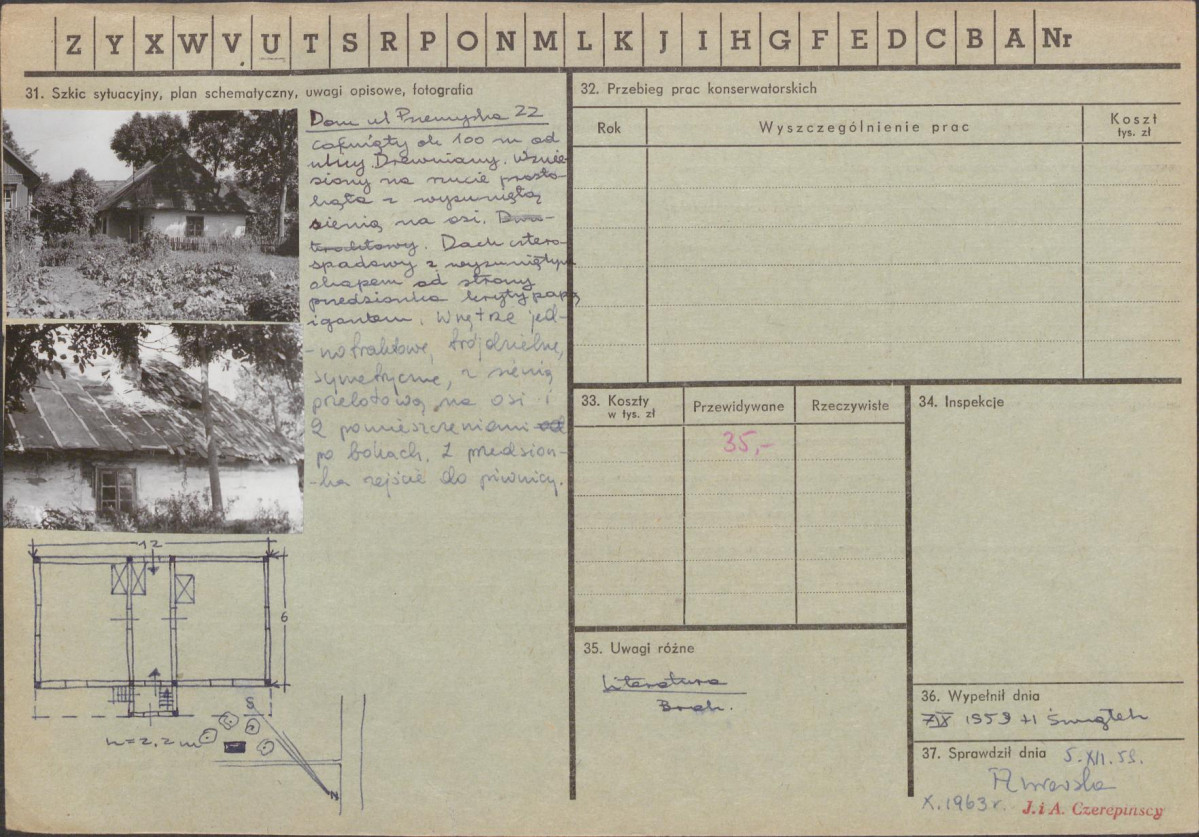 Z Y X W V U T S R P O N M L K J I H G F E D C B A Nr
31. Szkic sytuacyjny, plan schematyczny, uwagi opisowe, fotografia
Dom ul Przemyska 22
cofnięty ok 100 m od
ulicy. Drewniany. Wznie-
siony na rzucie prosto-
kąta z wysuniętą
sienią na osi. Dwu-
traktowy. Dach cztero-
spadowy z wysuniętym
okapem od strony
przedsionka kryty papą
i gontem. Wnętrze jed-
-notraktowe, trójdzielne,
symetryczne, z sienią
przelotową na osi i
2 pomieszczeniami
po bokach. Z przedsion-
-ka zejście do piwnicy.
12
6
h=2,2 m
S
N
32. Przebieg prac konserwatorskich
Rok
Wyszczególnienie prac
Koszt
tys. zł
33. Koszty
w tys. zł
Przewidywane
Rzeczywiste
35,-
34. Inspekcje
35. Uwagi różne
Literatura
Brak.
36. Wypełnił dnia
IX 1959 H Świątek
37. Sprawdził dnia 5.XII.59.
X.1963r. J. i A. Czerepińscy